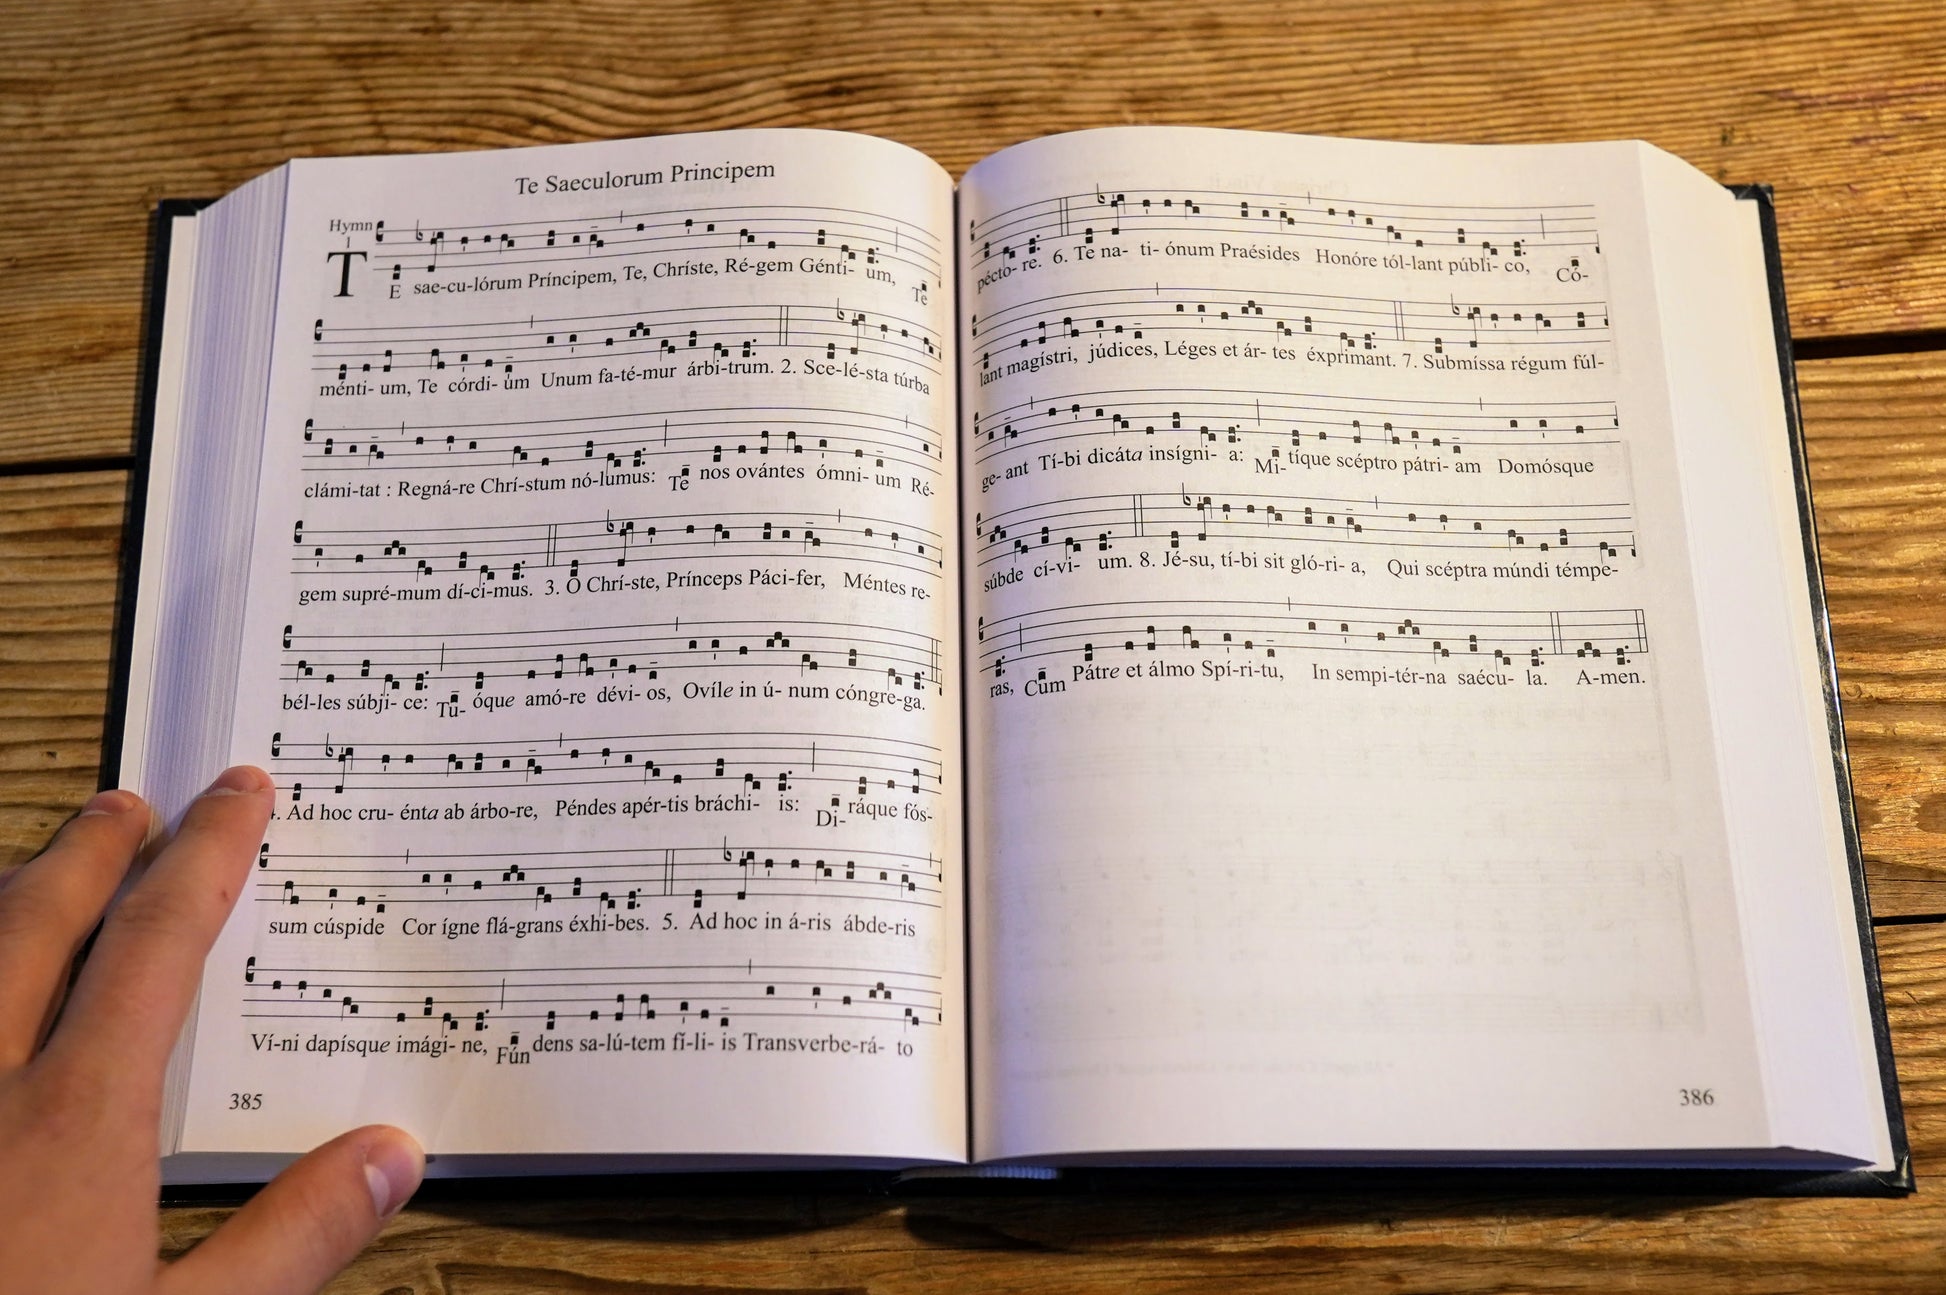 Te Saeculorum Principem
Hymn
1
TE sae-cu-lórum Príncipem, Te, Chríste, Ré-gem Génti- um, Te
ménti- um, Te córdi- um Unum fa-té-mur árbi-trum. 2. Sce-lé-sta túrba
clámi-tat : Regná-re Chrí-stum nó-lumus: Te nos ovántes ómni- um Ré-
gem supré-mum dí-ci-mus. 3. O Chrí-ste, Prínceps Páci-fer, Méntes re-
bél-les súbji- ce: Tu- óque amó-re dévi- os, Ovíle in ú- num cóngre-ga.
4. Ad hoc cru- énta ab árbo-re, Péndes apér-tis bráchi- is: Di- ráque fós-
sum cúspide Cor ígne flá-grans éxhi-bes. 5. Ad hoc in á-ris ábde-ris
Ví-ni dapísque imági- ne, Fún dens sa-lú-tem fí-li- is Transverbe-rá- to
385
pécto- re. 6. Te na- ti- ónum Praésides Honóre tól-lant públi- co, Có-
lant magístri, júdices, Léges et ár- tes éxprimant. 7. Submíssa régum fúl-
ge- ant Tí-bi dicáta insígni- a: Mi- tíque scéptro pátri- am Domósque
súbde cí-vi- um. 8. Jé-su, tí-bi sit gló-ri- a, Qui scéptra múndi témpe-
ras, Cum Pátre et álmo Spí-ri-tu, In sempi-tér-na saécu- la. A-men.
386